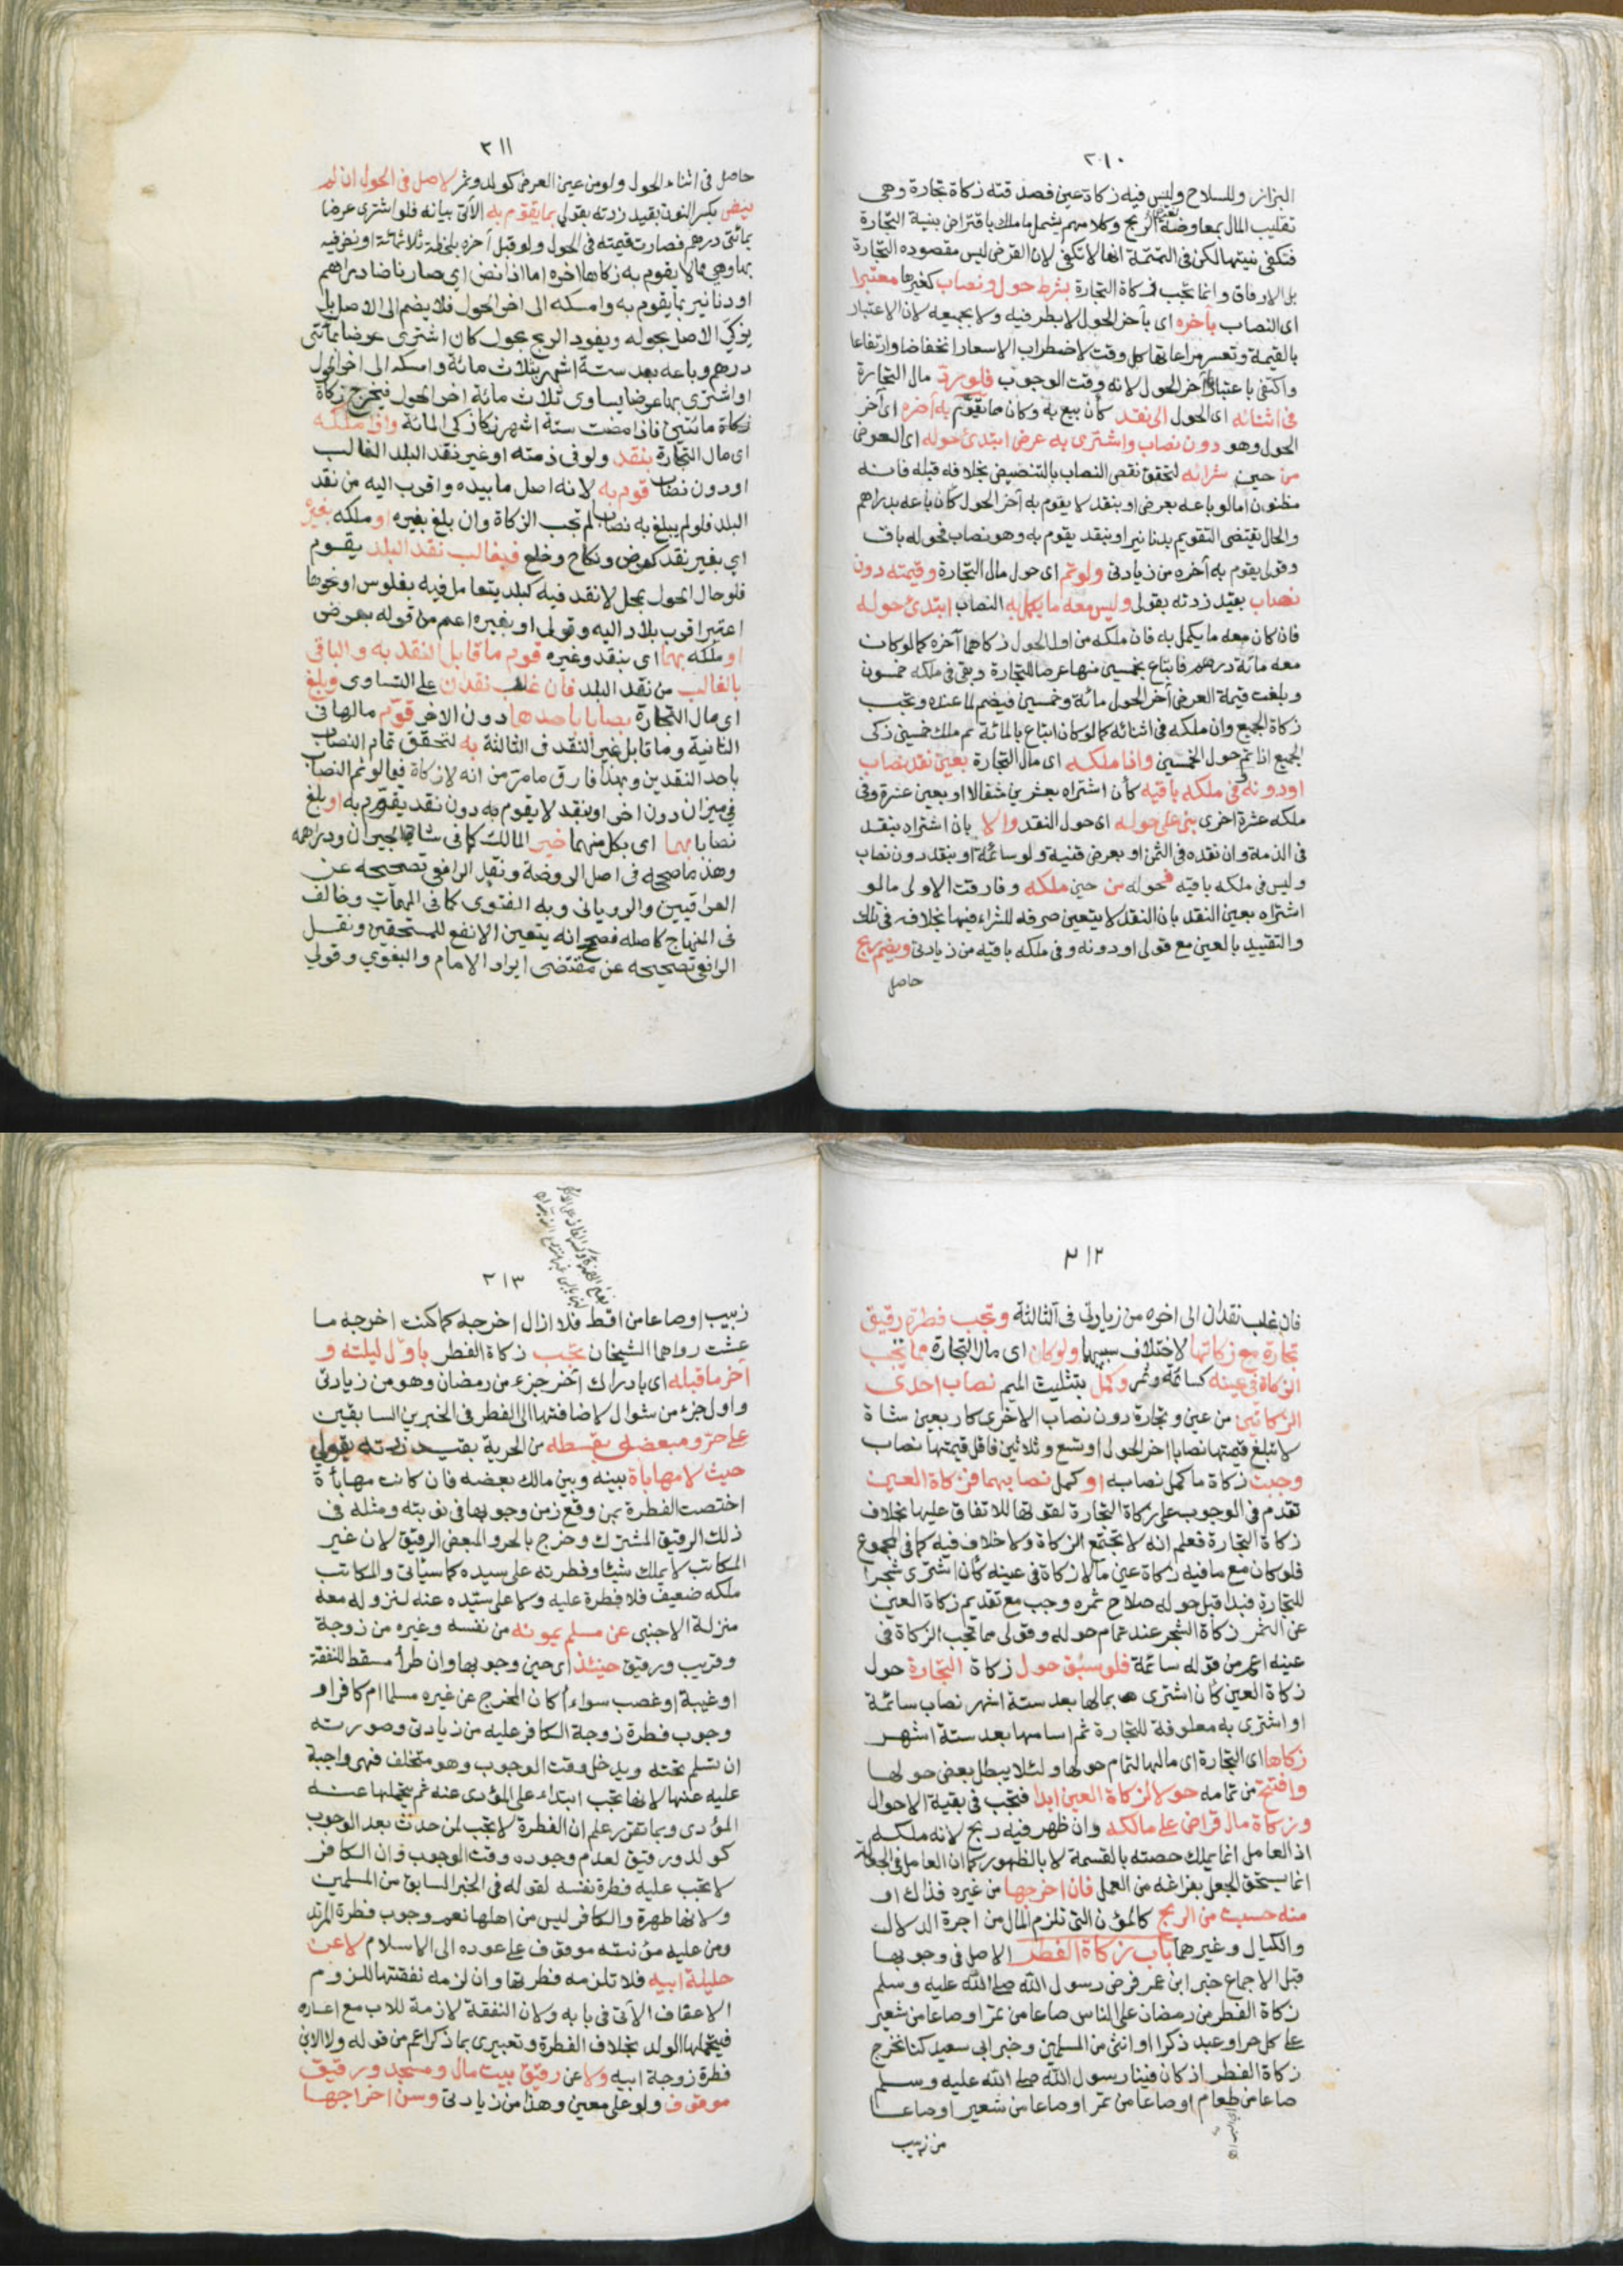 ٢١٠
البزاز وللسلاح وليس فيه زكاة عين فصدقته زكاة تجارة وهي
تقليب المال بمعاوضة لغرض الربح وكلامهم يشمل ما ملك باقتراض بنية التجارة
فتكفي نيتها لكن في التتمة انها لا تكفي لان القرض ليس مقصوده التجارة
بل الارفاق وانما تجب زكاة التجارة بشرط حول ونصاب كغيرها معتبرا
اي النصاب بآخره اي بآخر الحول لا بطرفيه ولا بجميعه لان الاعتبار
بالقيمة وتعسر مراعاتها كل وقت لاضطراب الاسعار انخفاضا وارتفاعا
واكتفي باعتبارها آخر الحول لانه وقت الوجوب فلو رد مال التجارة
في اثنائه اي الحول الى نقد كأن بيع به وكان مما يقوّم به آخره اي آخر
الحول وهو دون نصاب واشترى به عرض ابتدئ حوله اي العرض
من حين شرائه لتحقق نقص النصاب بالتنضيض بخلافه قبله فانه
مظنون اما لو باعه بعرض او بنقد لا يقوم به آخر الحول كأن باعه بدراهم
والحال يقتضى التقويم بدنانير او بنقد يقوم به وهو نصاب فحوله باق
وقولي يقوم به آخره من زيادتي ولو تم اى حول مال التجارة وقيمته دون
نصاب بقيد زدته بقولى وليس معه ما يكمل به النصاب ابتدئ حوله
فان كان معه ما يكمل به فان ملكه من اول الحول زكاهما آخره كما لو كان
معه مائة درهم فابتاع بخمسين منها عرضا للتجارة وبقى في ملكه خمسون
وبلغت قيمة العرض آخر الحول مائة وخمسين فيضم لما عنده وتجب
زكاة الجميع وان ملكه في اثنائه كما لو كان ابتاع بالمائة ثم ملك خمسين زكى
الجميع اذا تم حول الخمسين واذا ملكه اى مال التجارة بعين نقد نصاب
او دونه وفي ملكه باقيه كأن اشتراه بعشرين مثقالا او بعين عشرة وفى
ملكه عشرة اخرى بنى على حوله اى حول النقد والا بان اشتراه بنقد
في الذمة وان نقده في الثمن او بعرض قنية ولو سائمة او بنقد دون نصاب
وليس في ملكه باقيه فحوله من حين ملكه وفارقت الاولى ما لو
اشتراه بعين النقد بان النقد لا يتعين صرفه للشراء فيها بخلافه في تلك
والتقييد بالعين مع قولى او دونه وفي ملكه باقيه من زيادتي ويضم ربح
حاصل
٢١١
حاصل في اثناء الحول ولو من عين العرض كولد وثمر لاصل في الحول ان لم
ينض بكسر النون بقيد زدته بقولي بما يقوّم به الآتى بيانه فلو اشترى عرضا
بمائتى درهم فصارت قيمته في الحول ولو قبل آخره بلحظة ثلاثمائة او نض فيه
بها وهي مما لا يقوم به زكاها آخره اما اذا نض اى صار ناضا دراهم
او دنانير بما يقوم به وامسكه الى آخر الحول فلا يضم الى الاصل بل
يزكى الاصل بحوله ويفرد الربح بحول كان اشترى عرضا بمائتي
درهم وباعه بعد ستة اشهر بثلاث مائة وامسكه الى آخر الحول
او اشترى بها عرضا يساوي ثلاث مائة آخر الحول فيخرج زكاة
زكاة مائتين فاذا مضت ستة اشهر زكا زكى المائة واذا ملكه
اى مال التجارة بنقد ولو في ذمته او غير نقد البلد الغالب
او دون نصاب قوم به لانه اصل ما بيده واقرب اليه من نقد
البلد فلو لم يبلغ به نصابا لم تجب الزكاة وان بلغ بغيره او ملكه بغيره
اي بغير نقد كعوض ونكاح وخلع فبغالب نقد البلد يقوم
فلو حال الحول بمحل لا نقد فيه كبلد يتعامل فيه بفلوس او نحوها
اعتبر اقرب بلاد اليه وقولى او بغيره اعم من قوله بعرض
او ملكه بهما اي بنقد وغيره قوم ما قابل النقد به والباقي
بالغالب من نقد البلد فان غلب نقدان على التساوى وبلغ
اى مال التجارة نصابا باحدهما دون الآخر قوّم مالها في
الثانية وما قابل غير النقد في الثالثة به لتحقق تمام النصاب
باحد النقدين وبهذا فارق ما مر من انه لا زكاة فيما لو تم النصاب
في ميزان دون اخرى او بنقد لا يقوم به دون نقد يقوّم به او بلغ
نصابا بهما اى بكل منهما خير المالك كما في شاتي الجبران ودراهمه
وهذا ما صححه في اصل الروضة ونقل الرافعي تصحيحه عن
العراقيين والروياني وبه الفتوى كما في المهمات وخالف
في المنهاج كاصله فصحح انه يتعين الانفع للمستحقين ونقل
الرافعي تصحيحه عن مقتضى ايراد الامام والبغوي وقولي
٢١٢
فان غلب نقدان الى اخره من زيادتى في الثالثة وتجب فطرة رقيق
تجارة مع زكاتها لاختلاف سببهما ولو كان اى مال التجارة مما تجب
الزكاة في عينه كسائمة وثمر وكمل بتثليث الميم نصاب احدى
الزكاتين من عين وتجارة دون نصاب الاخرى كاربعين شاة
لا تبلغ قيمتها نصابا آخر الحول او تسع وثلاثين فاقل قيمتها نصاب
وجبت زكاة ما كمل نصابه او كمل نصابهما فزكاة العين
تقدم في الوجوب على زكاة التجارة لقوتها للاتفاق عليها بخلاف
زكاة التجارة فعلم انه لا تجتمع الزكاة ولا خلاف فيه كما في المجموع
فلو كان مع ما فيه زكاة عين ما لا زكاة في عينه كأن اشترى شجرا
للتجارة فبدا قبل حوله صلاح ثمره وجب مع تقديم زكاة العين
عن الثمر زكاة الشجر عند تمام حوله وقولى مما تجب الزكاة في
عينه اعم من قوله سائمة فلو سبق حول زكاة التجارة حول
زكاة العين كأن اشترى بمالها بعد ستة اشهر نصاب سائمة
او اشترى به معلوفة للتجارة ثم اسامها بعد ستة اشهر
زكاها اى التجارة اى مالها لتمام حولها ولئلا يبطل بعض حولها
وافتتح من تمامه حولا لزكاة العين ابدا فتجب في بقية الاحوال
وزكاة مال قراض على مالكه وان ظهر فيه ربح لانه ملكه
اذ العامل انما يملك حصته بالقسمة لا بالظهور كما ان العامل في الجعالة
انما يستحق الجعل بفراغه من العمل فان اخرجها من غيره فذاك او
منه حسبت من الربح كالمؤن التي تلزم المال من اجرة الدلال
والكيال وغيرهما باب زكاة الفطر الاصل في وجوبها
قبل الاجماع خبر ابن عمر فرض رسول الله صلى الله عليه وسلم
زكاة الفطر من رمضان على الناس صاعا من تمر او صاعا من شعير
على كل حر او عبد ذكرا او انثى من المسلمين وخبر ابى سعيد كنا نخرج
زكاة الفطر اذ كان فينا رسول الله صلى الله عليه وسلم
صاعا من طعام او صاعا من تمر او صاعا من شعير او صاعا
من زبيب
٢١٣
زبيب او صاعا من اقط فلا ازال اخرجه كما كنت اخرجه ما
عشت رواهما الشيخان تجب زكاة الفطر باوّل ليلته و
آخر ما قبله اى بادراك آخر جزء من رمضان وهو من زيادتى
واول جزء من شوال لاضافتها الى الفطر في الخبرين السابقين
على حر ومبعض بقسطه من الحرية بقيد زدته بقولي
حيث لا مهاياة بينه وبين مالك بعضه فان كانت مهاياة
اختصت الفطرة بمن وقع زمن وجوبها في نوبته ومثله في
ذلك الرقيق المشترك وخرج بالحر والمبعض الرقيق لان غير
المكاتب لا يملك شيئا وفطرته على سيده كما سيأتي والمكاتب
ملكه ضعيف فلا فطرة عليه ولا على سيّده عنه لنزوله معه
منزلة الاجنبى عن مسلم يمونه من نفسه وغيره من زوجة
وقريب ورقيق حينئذ اى حين وجوبها وان طرأ مسقط للنفقة
او غيبة او غصب سواء أكان المخرج عن غيره مسلما ام كافرا و
وجوب فطرة زوجة الكافر عليه من زيادتى وصورته
ان تسلم تحته ويدخل وقت الوجوب وهو متخلف فهي واجبة
عليه عنها لانها تجب ابتداء على المؤدى عنه ثم يتحملها عنه
المؤدى وبما تقرر علم ان الفطرة لا تجب لمن حدث بعد الوجوب
كولد ورقيق لعدم وجوده وقت الوجوب وان الكافر
لا تجب عليه فطرة نفسه لقوله في الخبر السابق من المسلمين
ولانها طهرة والكافر ليس من اهلها نعم وجوب فطرة المرتد
ومن عليه مؤنته موقوف على عوده الى الاسلام لا عن
حليلة ابيه فلا تلزمه فطرتها وان لزمه نفقتها للزوم
الاعفاف الآتى في بابه ولان النفقة لازمة للاب مع اعساره
فيتحملها الولد بخلاف الفطرة وتعبيرى بما ذكر اعم من قوله ولا الابن
فطرة زوجة ابيه ولا عن رقيق بيت مال ومسجد ورقيق
موقوف ولو على معين وهذا من زيادتى وسن اخراجها